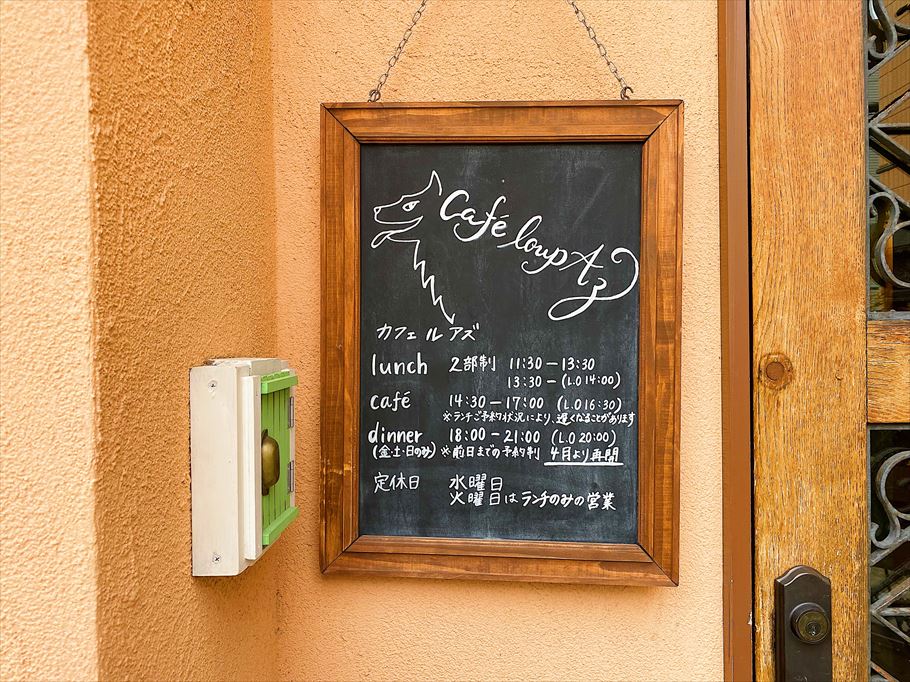 Café loup Az
カフェ ル アズ
lunch 2部制 11:30-13:30
13:30-(L.O 14:00)
café 14:30-17:00 (L.O 16:30)
※ランチご予約状況により、遅くなることがあります
dinner 18:00-21:00 (L.O 20:00)
(金・土・日のみ) ※前日までの予約制 4月より再開
定休日 水曜日
火曜日はランチのみの営業